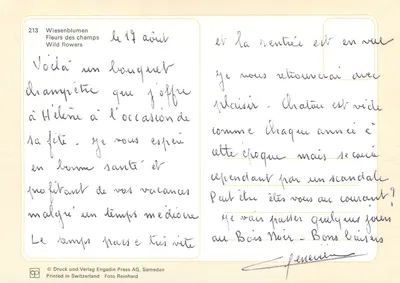 213 Wiesenblumen
Fleurs des champs
Wild flowers
le 17 août
Voilà un bouquet
champêtre que j'offre
à Hélène à l'occasion de
sa fête. Je vous espère
en bonne santé et
profitant de vos vacances
malgré un temps médiocre
Le temps passe très vite
© Druck und Verlag Engadin Press AG, Samedan
Printed in Switzerland Foto Reinhard
et la rentrée est en vue
Je vous retrouverai avec
plaisir. Chatou est vide
comme chaque année à
cette époque mais secouée
cependant par un scandale
Peut être êtes vous au courant?
Je vais passer quelques jours
au Bois Noir - Bons baisers
Geneviève